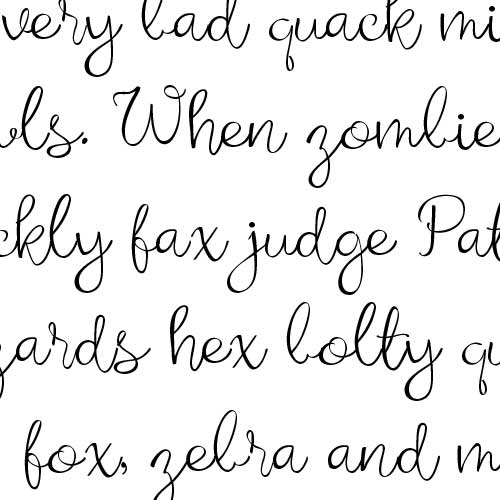 very bad quack mi
wls. When zombie
ckly fax judge Pat
zards hex bolty qu
fox, zebra and m